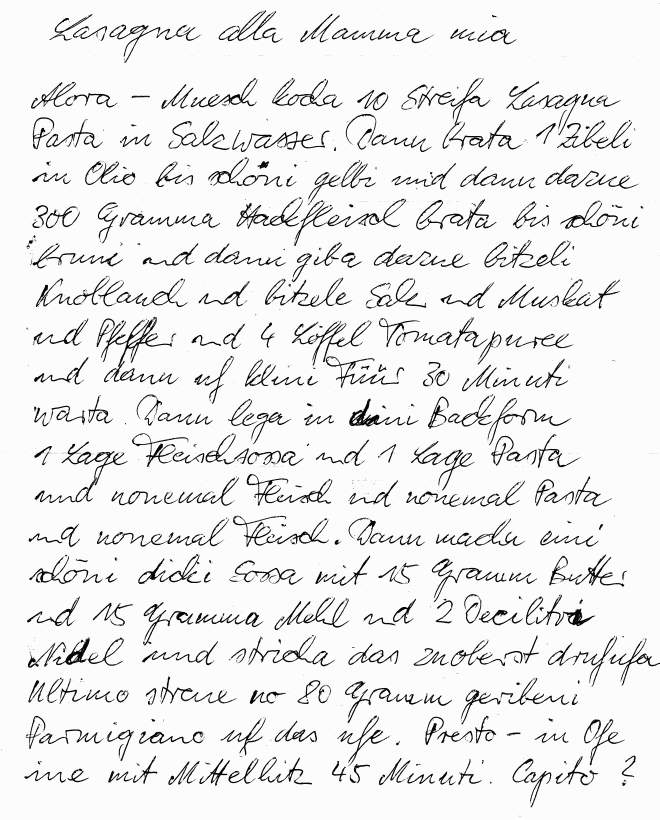 Lasagna alla Mamma mia
Alora – Muesch kocha 10 Streifa Lasagna
Pasta in Salzwasser. Dann brata 1 Zibeli
in Olio bis schöni gelbi und dann dazue
300 Gramma Hackfleisch brata bis schöni
bruni und dann giba dazue bitzeli
Knoblauch nd bitzele Salz nd Muskat
nd Pfeffer nd 4 Löffel Tomatapuree
und dann uf kleini Füür 30 Minuti
warta. Dann lega in dini Backform
1 Lage Fleischsossa nd 1 Lage Pasta
und nonemal Fleisch nd nonemal Pasta
nd nonemal Fleisch. Dann macha eini
schöni dicki Sossa mit 15 Gramm Butter
nd 15 Gramma Mehl nd 2 Decilitri
Nidel und stricha das zuoberst drufufa
Ultimo streue no 80 Gramm geribeni
Parmigiano uf das ufe. Presto – in Ofe
ine mit Mittelhitz 45 Minuti. Capito?